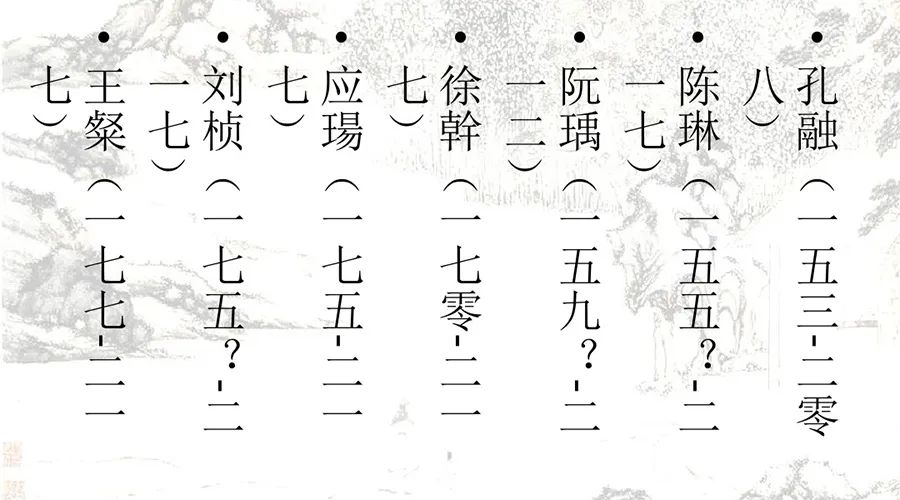 • 孔融（一五三-二零
八）
• 陈琳（一五五？-二
一七）
• 阮瑀（一五九？-二
一二）
• 徐幹（一七零-二一
七）
• 应瑒（一七五-二一
七）
• 刘桢（一七五？-二
一七）
• 王粲（一七七-二一
七）